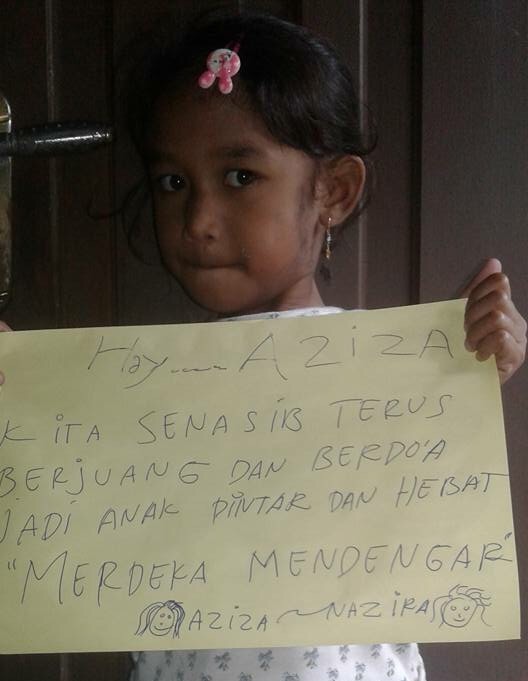 Hay.... AZIZA
KITA SENASIB TERUS
BERJUANG DAN BERDO'A
JADI ANAK PINTAR DAN HEBAT
"MERDEKA MENDENGAR"
AZIZA ~ NAZIRA